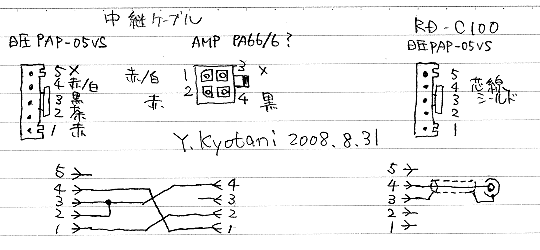 中継ケーブル
日圧 PAP-05VS
AMP PA66/6?
RD-C100
日圧PAP-05VS
5 X
4 赤/白
3 黒
2 茶
1 赤
赤/白 1
赤 2
3 X
4 黒
5
4 芯線
3 シールド
2
1
Y. Kyotani 2008.8.31
5
4
3
2
1
4
3
2
1
5
4
3
2
1